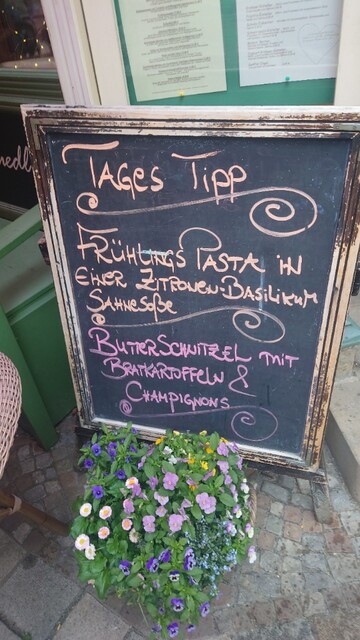 Tages Tipp
Frühlings Pasta in
einer Zitronen-Basilikum
Sahnesoße
Butterschnitzel mit
Bratkartoffeln &
Champignons